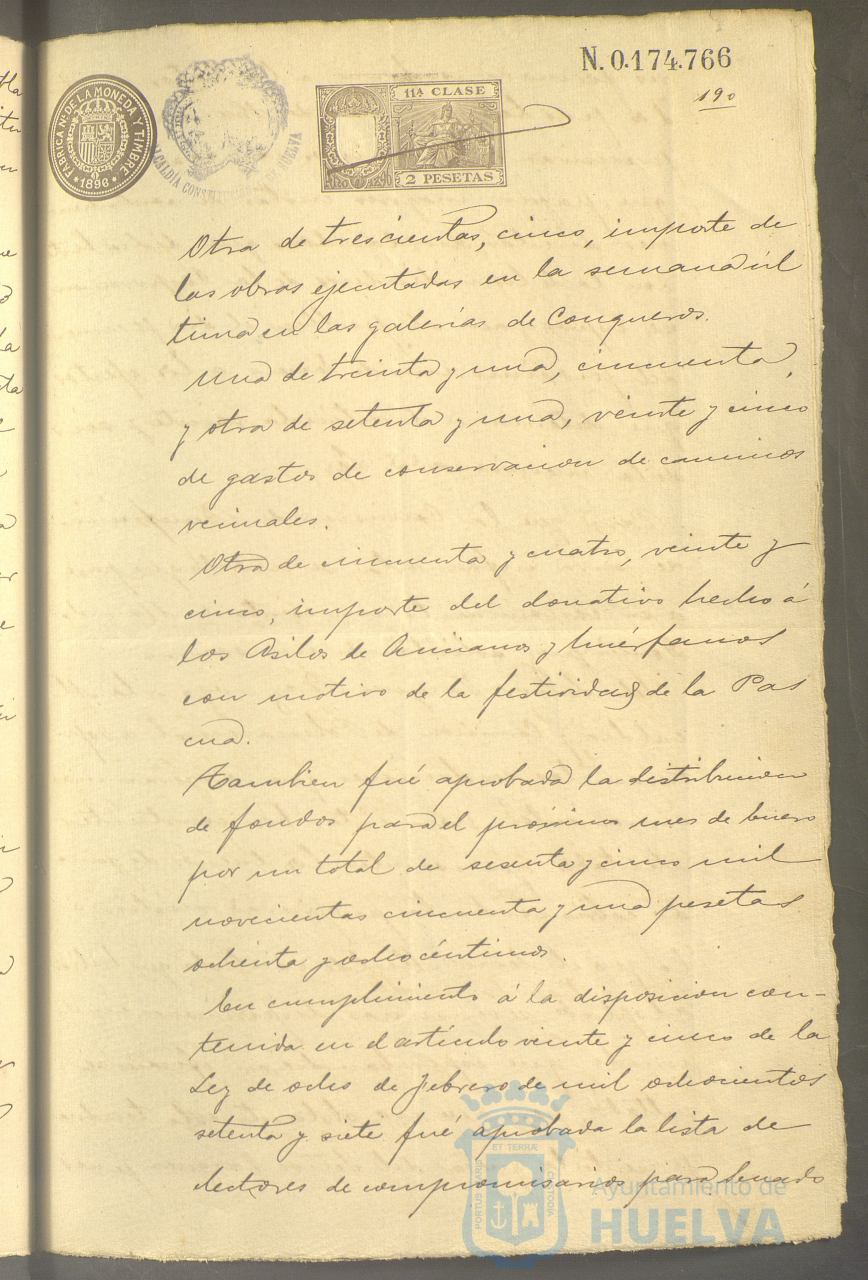 N. 0.174.766
190
FÁBRICA NL DE LA MONEDA Y TIMBRE
1896
ALCALDIA CONSTITUCIONAL DE HUELVA
11ª CLASE
2 PESETAS
Otra de trescientas, cinco, importe de
las obras ejecutadas en la semana úl
tima en las galerías de Conqueros.
Una de treinta y una, cincuenta,
y otra de setenta y una, veinte y cinco
de gastos de conservacion de caminos
vecinales.
Otra de cincuenta y cuatro, veinte y
cinco, importe del donativo hecho á
los Asilos de Ancianos y Huérfanos
con motivo de la festividad de la Pas
cua.
Tambien fué aprobada la distribucion
de fondos para el próximo mes de Enero
por un total de sesenta y cinco mil
novecientas cincuenta y una pesetas
ochenta y ocho céntimos.
En cumplimiento á la disposicion con-
tenida en el artículo veinte y cinco de la
Ley de ocho de Febrero de mil ochocientos
setenta y siete fué aprobada la lista de
electores de compromisarios para Senado
ET TERRÆ
PORTUS MARIS
CUSTODIA
Ayuntamiento de
HUELVA